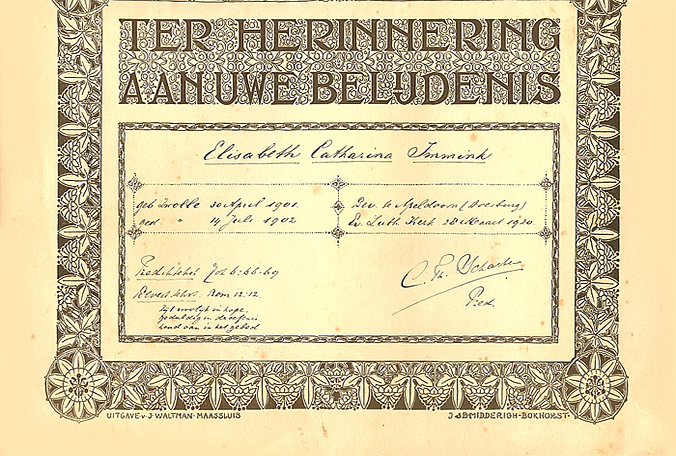 TER HERINNERING
AAN UWE BELIJDENIS
Elisabeth Catharina Immink
geb Zwolle 30 April 1901.
ged. " 14 Juli 1902
Bev. te Apeldoorn
Ev. Luth Kerk 28 Maart 1920.
Joh 6: 66-69
Rom 12:12.
Zijt vroolijk in hope.
Geduldig in
houd aan in het gebed
C. Th. Scharten
Pred.
UITGAVE v. J. WALTMAN - MAASSLUIS
J. & B. MIDDERIGH-BOKHORST